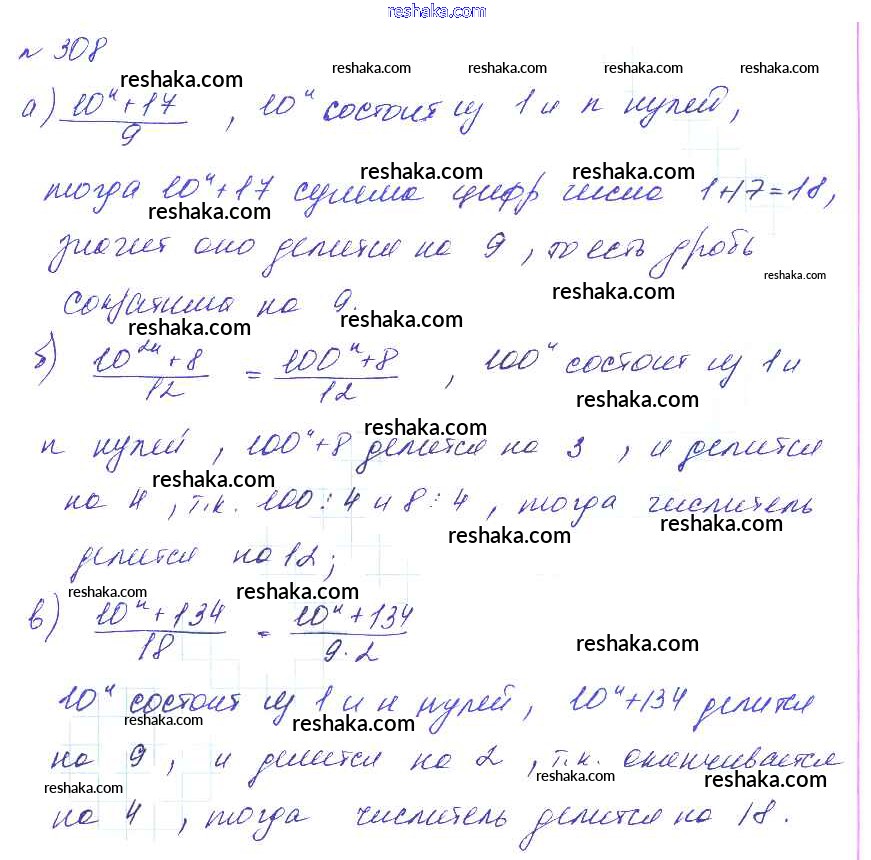 www.reshaka.com
№ 308
reshaka.com reshaka.com reshaka.com reshaka.com
а) (10ⁿ + 17)/9 , 10ⁿ состоит из 1 и n нулей,
reshaka.com reshaka.com
тогда 10ⁿ + 17 сумма цифр числа 1+17=18,
reshaka.com
значит оно делится на 9 , то есть дробь
reshaka.com reshaka.com
сократима на 9.
reshaka.com
б) (10²ⁿ + 8)/12 = (100ⁿ + 8)/12 , 100ⁿ состоит из 1 и
reshaka.com reshaka.com
n нулей , 100ⁿ + 8 делится на 3 , и делится
reshaka.com
на 4 , т.к. 100 : 4 и 8 : 4 , тогда числитель
reshaka.com reshaka.com
делится на 12;
reshaka.com reshaka.com
в) (10ⁿ + 134)/18 = (10ⁿ + 134)/(9 · 2)
reshaka.com
10ⁿ состоит из 1 и n нулей, 10ⁿ+134 делится
reshaka.com reshaka.com
на 9 , и делится на 2 , т.к. оканчивается
reshaka.com reshaka.com reshaka.com
на 4 , тогда числитель делится на 18.